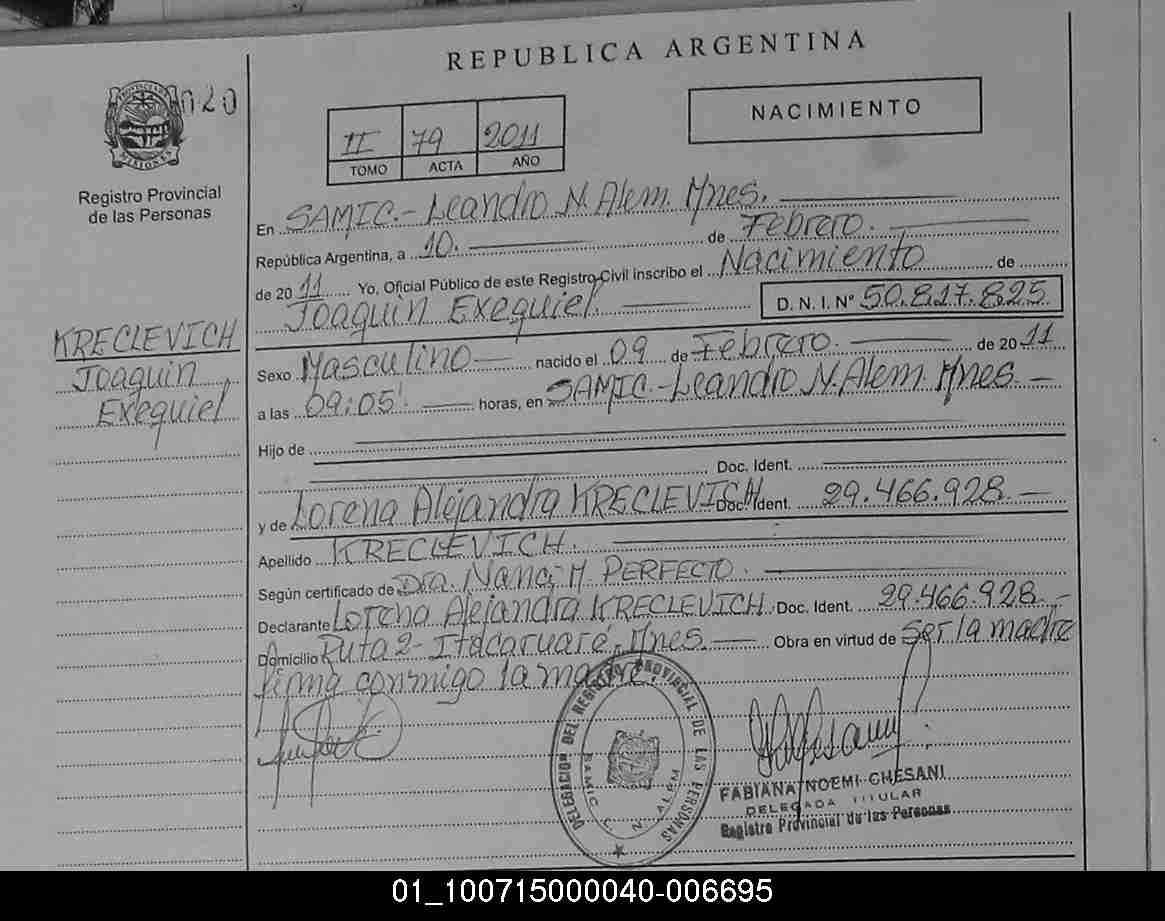 REPUBLICA ARGENTINA
020
PROVINCIA DE
MISIONES
Registro Provincial
de las Personas
II 79 2011
TOMO ACTA AÑO
NACIMIENTO
En SAMIC.- Leandro N. Alem. Mnes.
República Argentina, a 10. de Febrero.
de 2011 Yo, Oficial Público de este Registro Civil inscribo el Nacimiento de
Joaquin Exequiel. D. N. I. Nº 50.817.825
KRECLEVICH
Joaquin
Exequiel
Sexo Masculino nacido el 09 de Febrero. de 2011
a las 09:05' horas, en SAMIC.-Leandro N. Alem Mnes.
Hijo de
Doc. Ident.
y de Lorena Alejandra KRECLEVICH Doc. Ident. 29.466.928.
Apellido KRECLEVICH.
Según certificado de Dra. Nanci M. PERFECTO.
Declarante Lorena Alejandra KRECLEVICH Doc. Ident. 29.466.928.
Domicilio Ruta 2- Itacaruaré, Mnes. Obra en virtud de ser la madre
firma conmigo la madre.
DELEGACION DEL REGISTRO PROVINCIAL DE LAS PERSONAS
SAMIC L. N. ALEM
FABIANA NOEMI CHESANI
DELEGADA TITULAR
Registro Provincial de las Personas
01_100715000040-006695